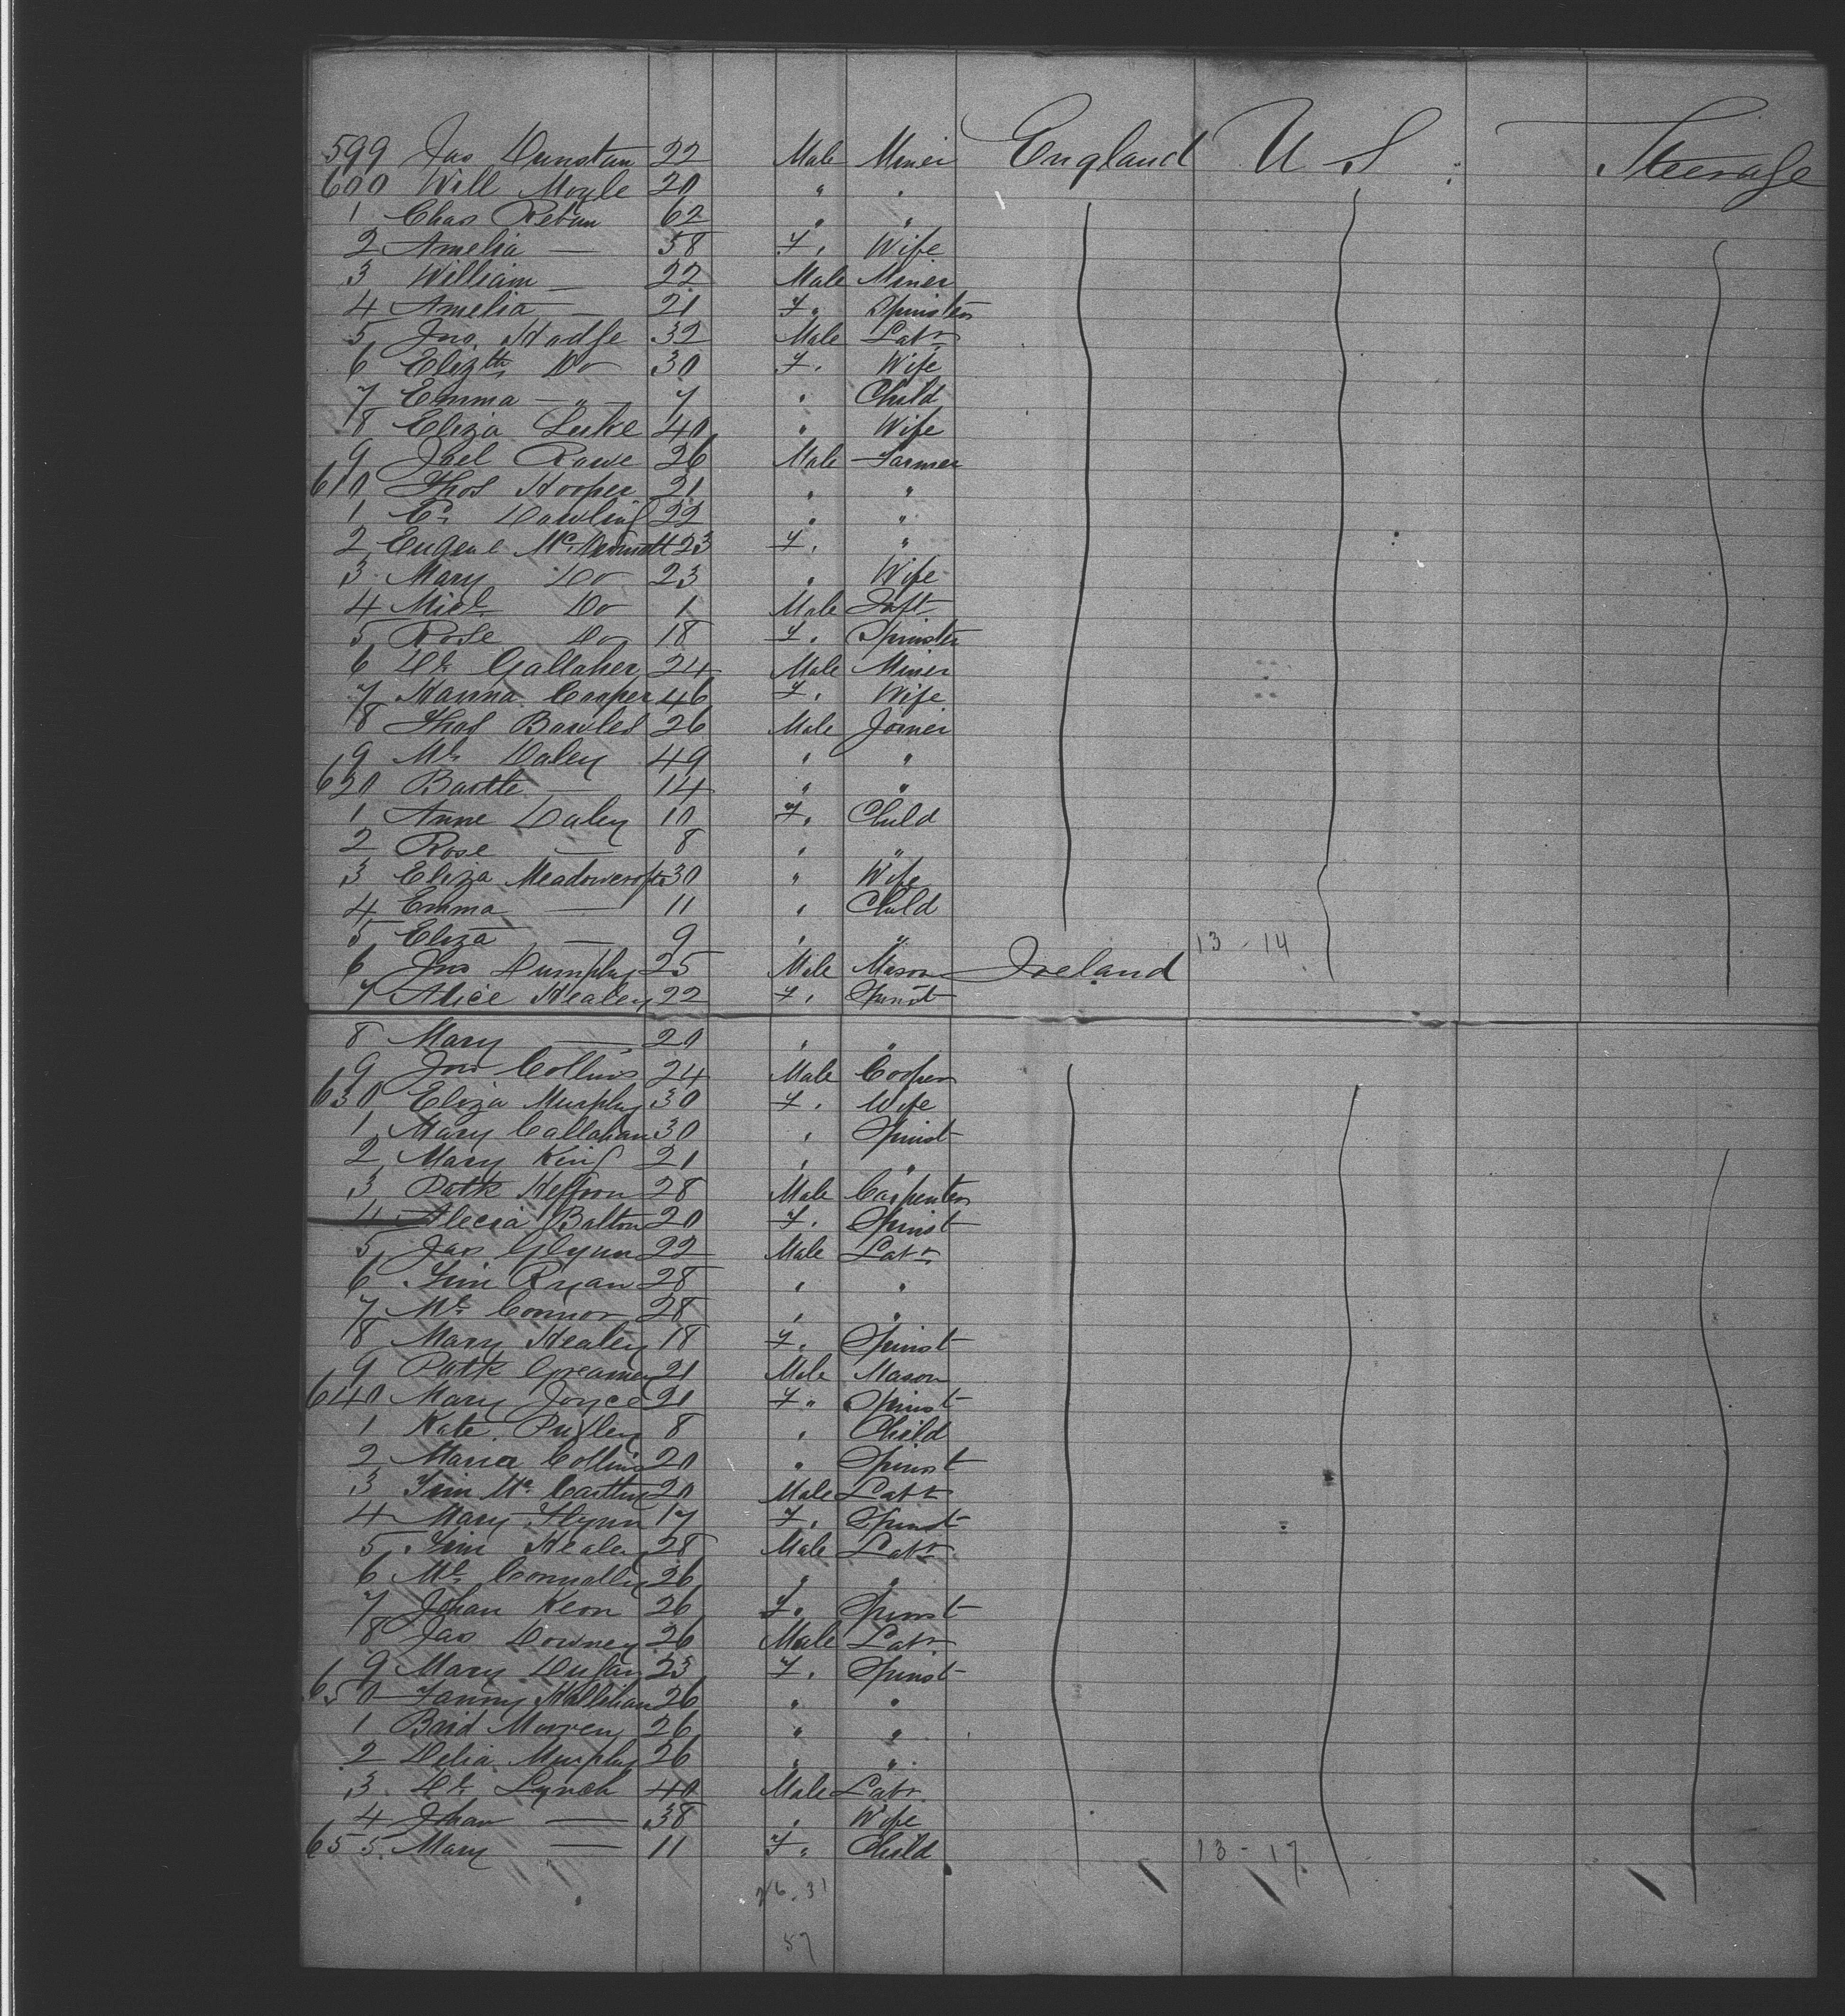 599 Jas Dunstan 22 Male Miner England U S Steerage
600 Will Moyle 20 " "
1 Chas Rebun 62 " "
2 Amelia — 58 F. Wife
3 William — 22 Male Miner
4 Amelia — 21 F. Spinster
5 Jno. Hodge 32 Male Labr
6 Elizth Do 30 F. Wife
7 Emma — " — 7 " Child
8 Eliza Luke 40 " Wife
9 Joel Rowe 26 Male Farmer
610 Thos Hooper 21 " "
1 Ed Dowling 22 " "
2 Eugene McDermott 23 F. "
3 Mary Do 23 " Wife
4 Michl Do 1 Male Inft
5 Rose Do 18 F. Spinster
6 Dl Gallaher 24 Male Miner
7 Hanna Cooper 46 F. Wife
8 Thos Bowles 26 Male Joiner
9 Ml Daley 49 " "
620 Bartle — 14 " "
1 Anne Daley 10 F. Child
2 Rose — 8 " "
3 Eliza Meadowcroft 30 " Wife
4 Emma — 11 " Child
5 Eliza — 9 " " 13 - 14
6 Jno Dumphy 25 Male Mason Ireland
7 Alice Healey 22 F. Spinst
8 Mary — 20 " "
9 Jno Collins 24 Male Cooper
630 Eliza Murphy 30 F. Wife
1 Mary Callahan 30 " Spinst
2 Mary King 21 " "
3 Patk Heffron 28 Male Carpenter
4 Alecia Bolton 20 F. Spinst
5 Jas Glynn 22 Male Labr
6 Tim Ryan 28 " "
7 Ml Connor 28 " "
8 Mary Healey 18 F. Spinst
9 Patk Greamer 21 Male Mason
640 Mary Joyce 21 F. Spinst
1 Kate 8 " Child
2 Maria Collins 20 " Spinst
3 Tim McCarthy 20 Male Labr
4 Mary Flynn 17 F. Spinst
5 Tim Healey 28 Male Labr
6 Ml Connolly 26 " "
7 Johan Keon 26 F. Spinst
8 Jas Downey 26 Male Labr
9 Mary Dugan 23 F. Spinst
650 Fanny Hallihan 26 " "
1 Brid 26 " "
2 Delia Murphy 26 " "
3 Dl Lynch 40 Male Labr
4 Johan — 38 " Wife
655 Mary — 11 F. Child 13 - 17
26. 31
57